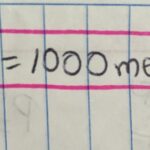 = 1000 me